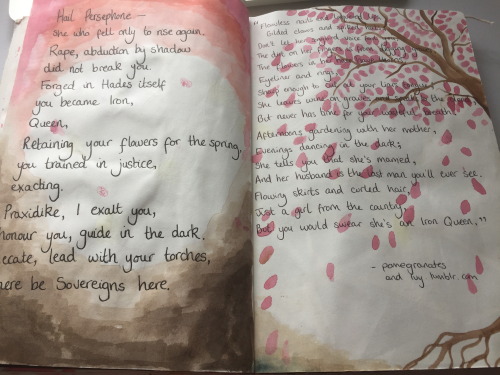 Hail Persephone -
She who fell only to rise again.
Rape, abduction by shadow
did not break you.
Forged in Hades itself
you became Iron,
Queen,
Retaining your flowers for the spring,
you trained in justice,
exacting.
Praxidike, I exalt you,
honour you, guide in the dark.
ecate, lead with your torches,
here be Sovereigns here.
"Flawless nails and
Gilded claws and
Don't let her
The dirt on her fingers is from
The flowers in her hair
Eyeliner and rings
Sharp enough to cut out your
She leaves wine on graves and
But never has time for your
Afternoons gardening with her mother,
Evenings dancing in the dark;
She tells you that she's married,
And her husband is the last man you'll ever see.
Flowing skirts and corled hair,
Just a girl from the country
But you would swear she's an Iron Queen,"
- pomegranates
and ivy tumblr.com